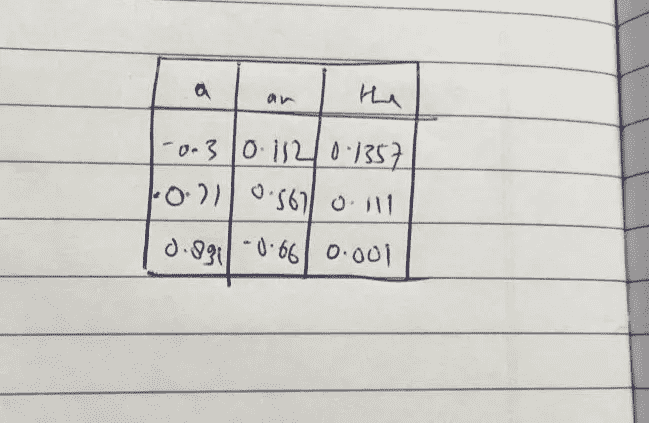 a an the
-0.3 0.112 0.1357
-0.71 0.567 0.111
0.891 -0.66 0.001